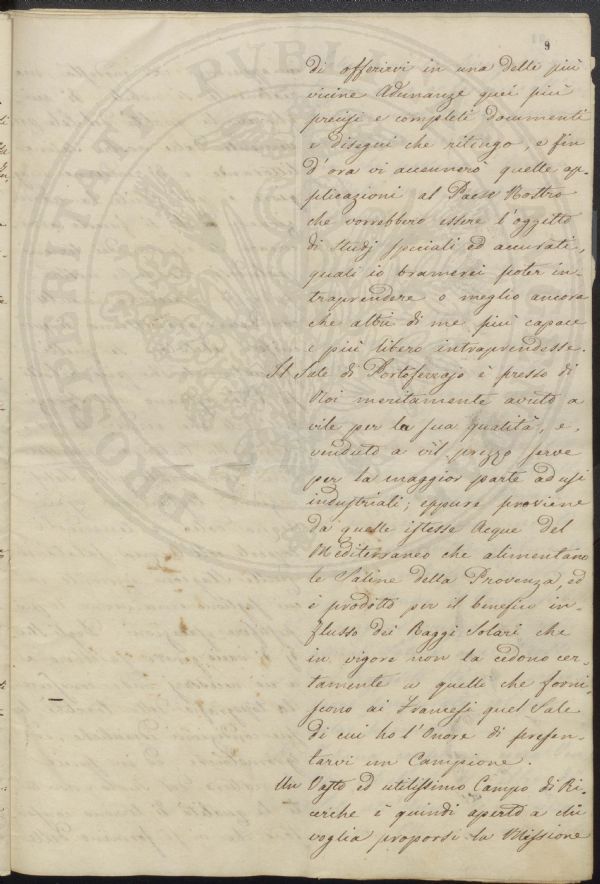 9
di offerirvi in una delle più
vicine Adunanze quei più
precisi e completi documenti
e disegni che ritengo, e fin
d'ora vi accennerò quelle ap-
plicazioni al Paese Nostro
che vorrebbero essere l'oggetto
di studj speciali ed accurati,
quali io bramerei poter in-
traprendere o meglio ancora
che altri di me più capace
e più libero intraprendesse.
Il Sale di Portoferrajo è presso di
Noi meritamente avuto a
vile per la sua qualità, e,
venduto a vil prezzo serve
per la maggior parte ad usi
industriali; eppure proviene
da quelle istesse Acque del
Mediterraneo che alimentano
le Saline della Provenza, ed
è prodotto per il benefico in-
flusso dei Raggi Solari che
in vigore non la cedono cer-
tamente a quelli che forni-
scono ai Francesi quel Sale
di cui ho l'Onore di presen-
tarvi un Campione.
Un Vasto ed utilissimo Campo di Ri-
cerche è quindi aperto a chi
voglia proporsi la Missione
PROSPERITATI PVBLI